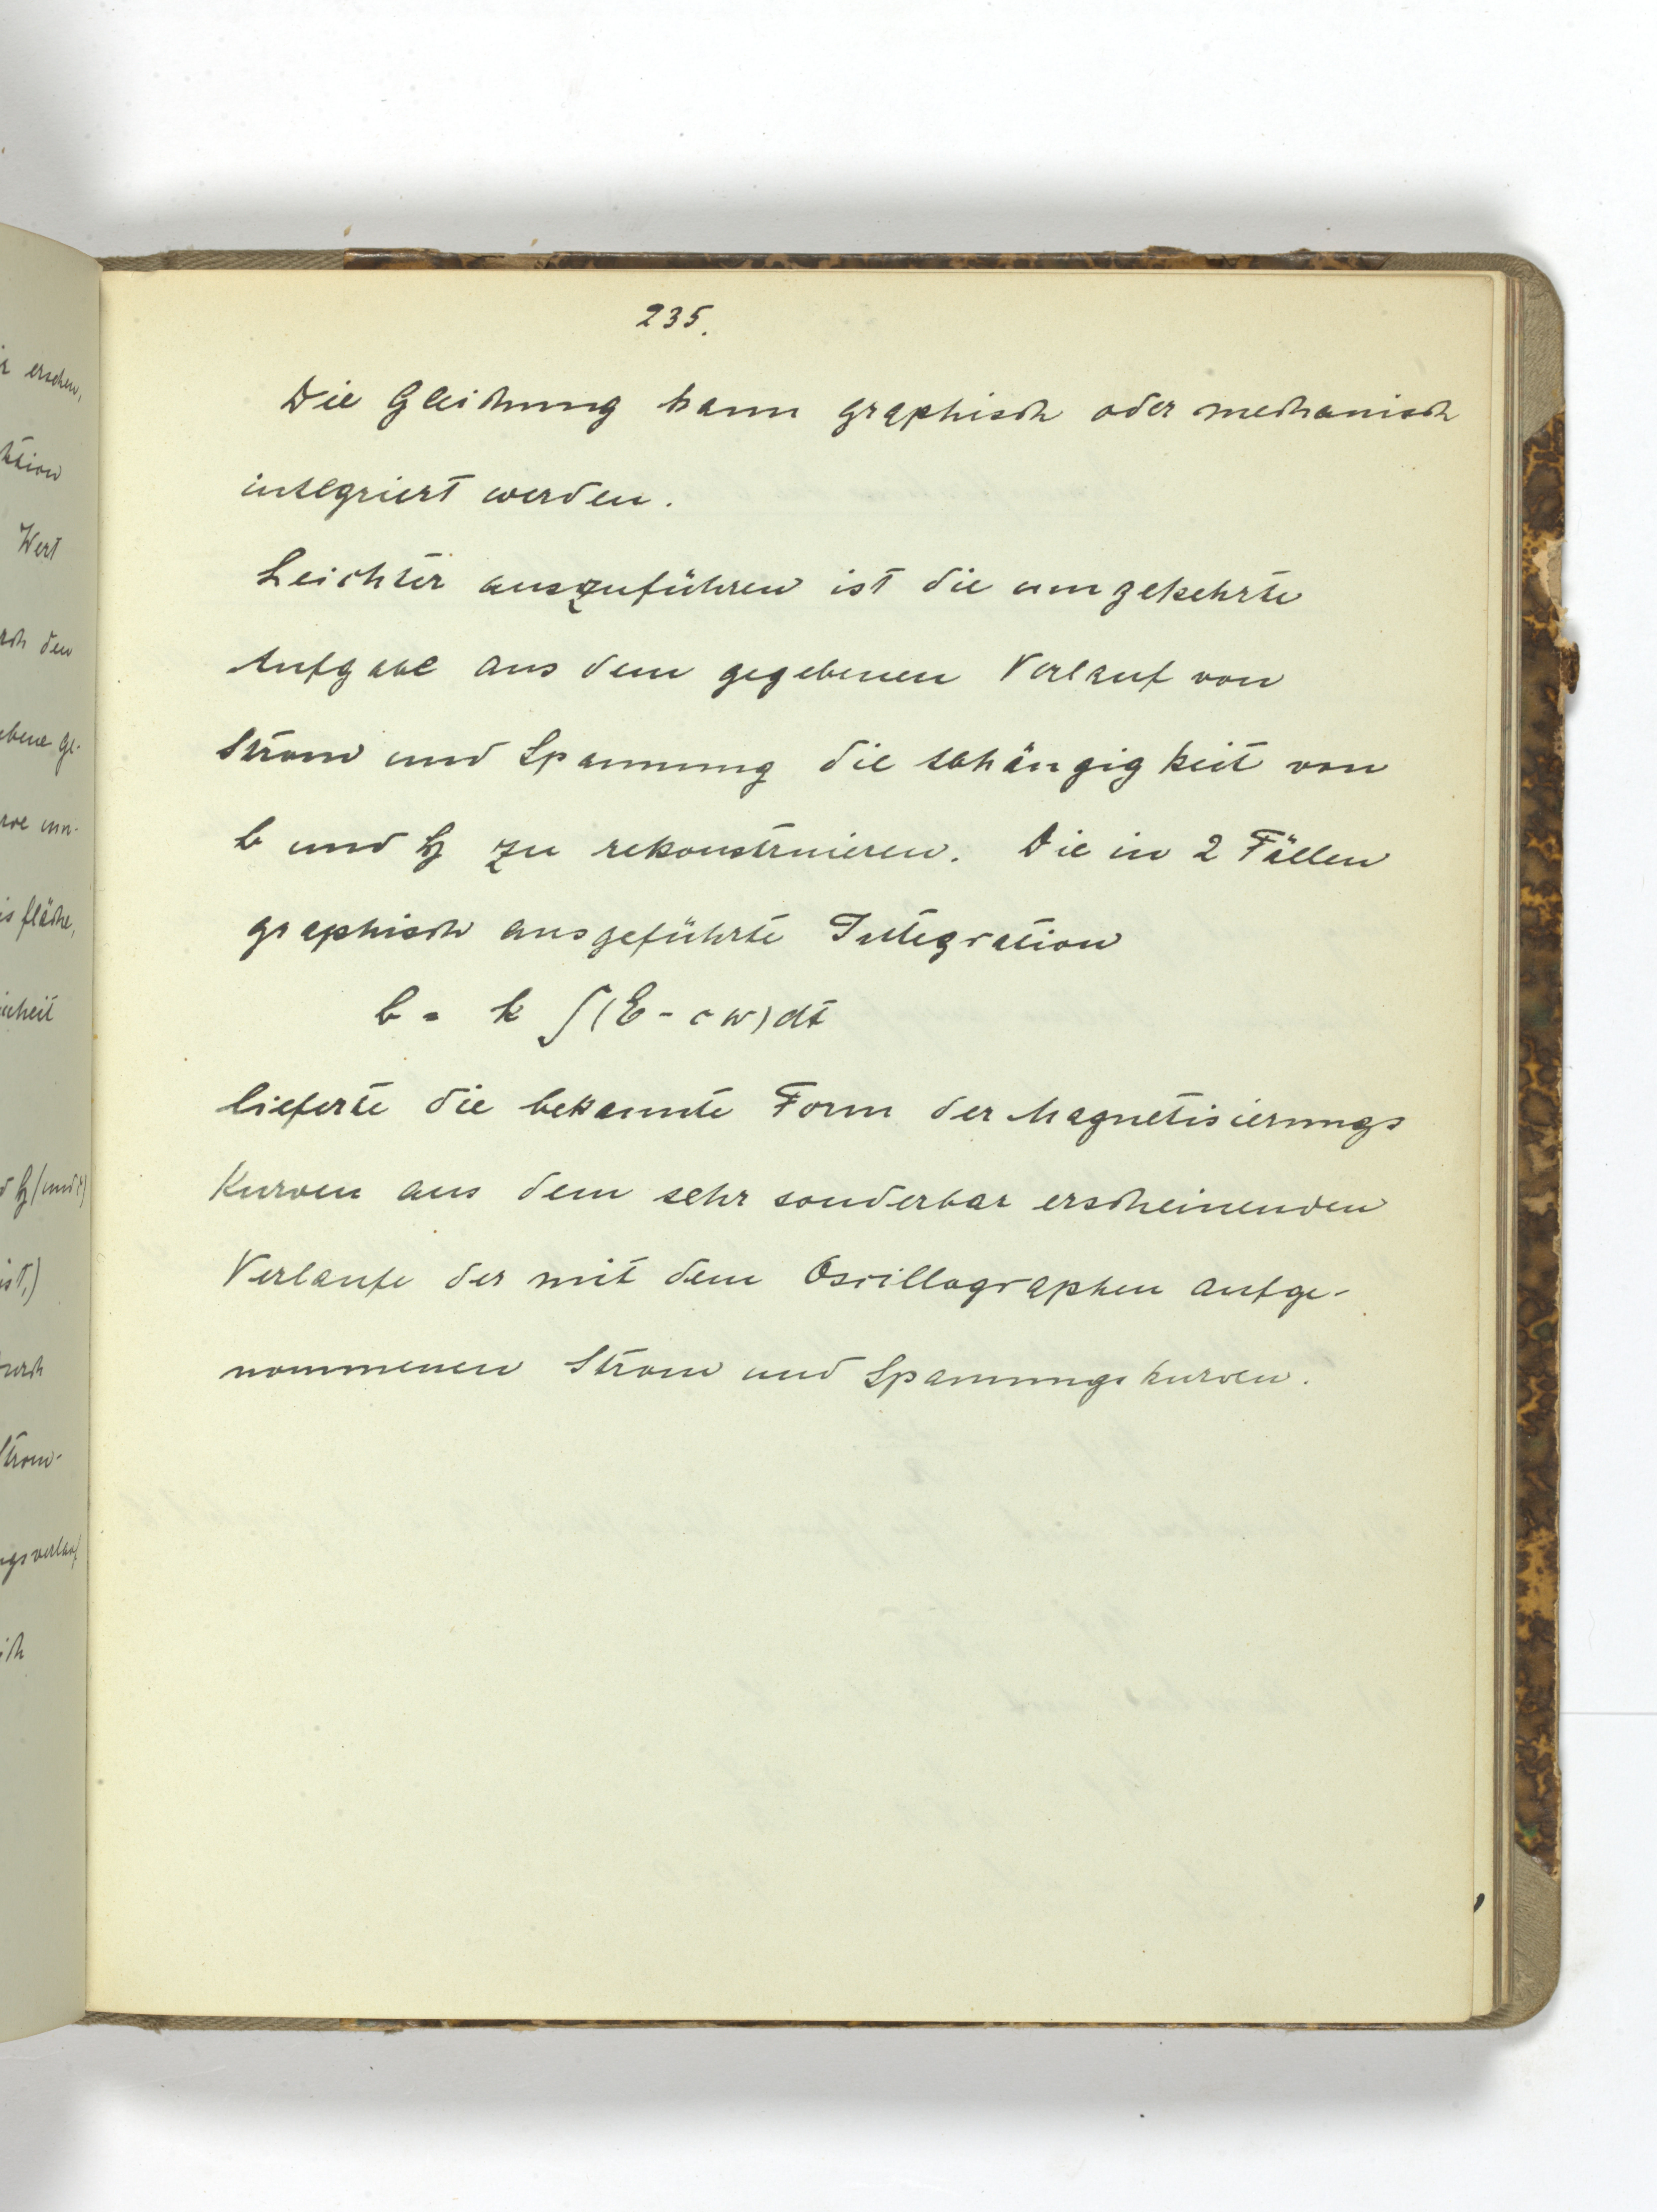 r ersehen,
ktion
Wert
rch den
ebene Ge-
is fläche,
inheit
ist,)
durch
Strom-
ngsverlauf
ich
235.
Die Gleichung kann graphisch oder mechanisch
integriert werden.
Leichter auszuführen ist die umgekehrte
Aufgabe aus dem gegebenen Verlauf von
Strom und Spannung die Abhängigkeit von
b und h zu rekonstruieren. Die in 2 Fällen
graphisch ausgeführte Integration
b = k ∫(E - c w) dt
lieferte die bekannte Form der Magnetisierungs
Kurven aus dem sehr sonderbar erscheinenden
Verlaufe der mit dem Oscillographen aufge-
nommenen Strom und Spannungskurven.